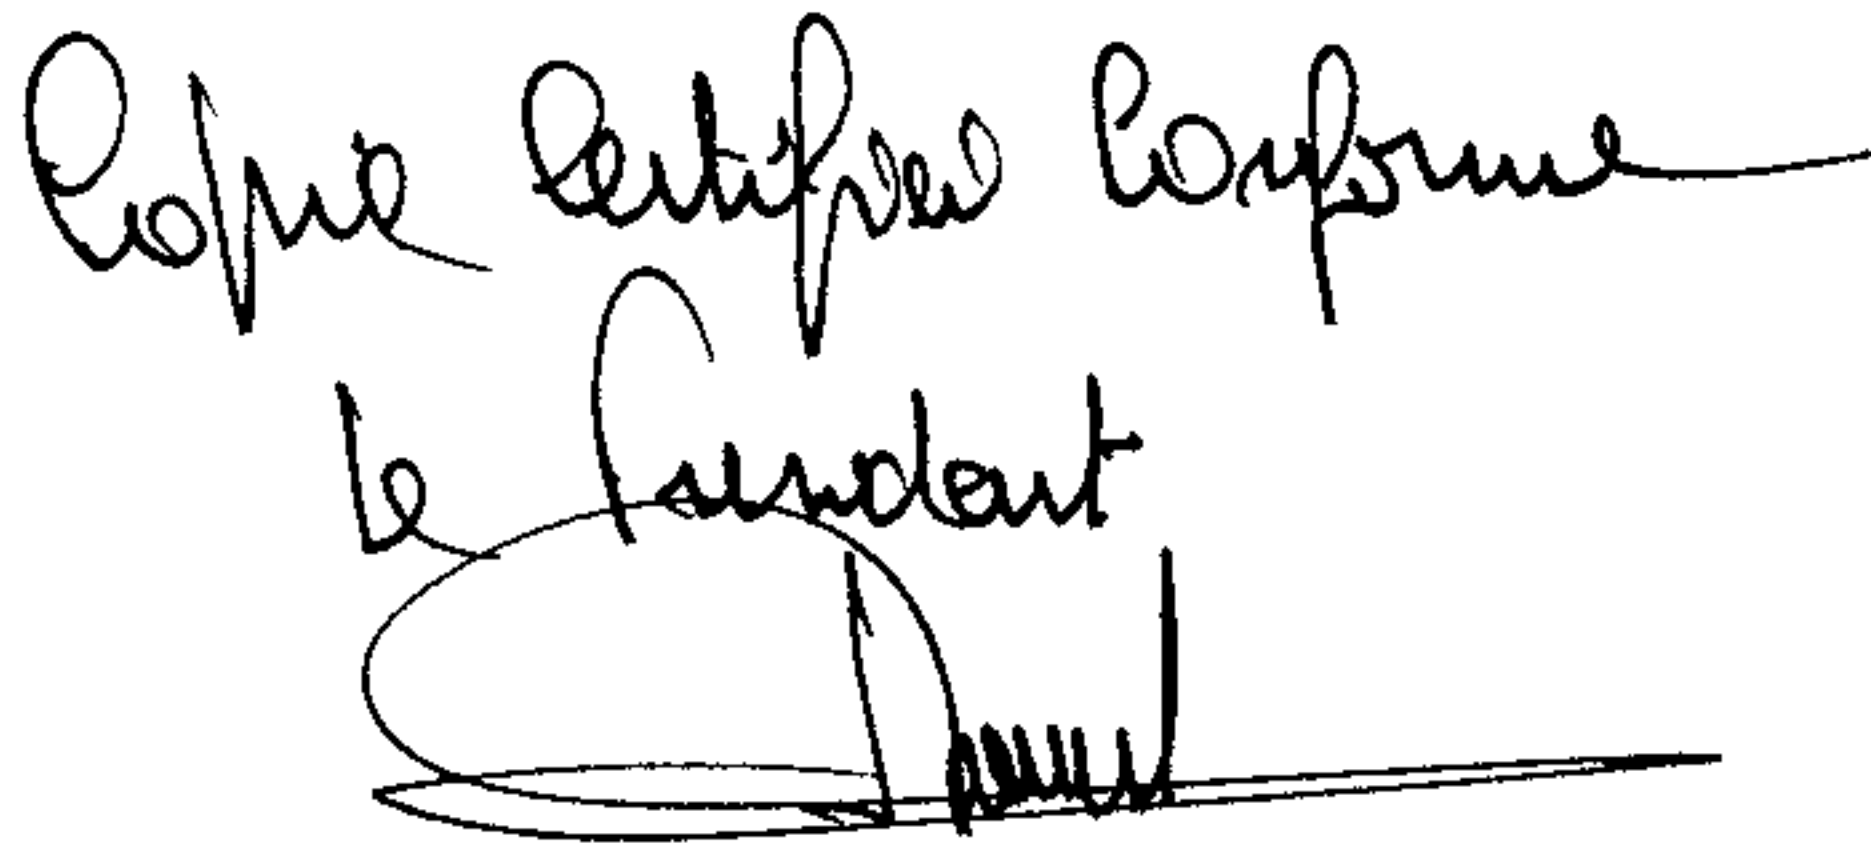 Copie Certifiée Conforme
Le Président